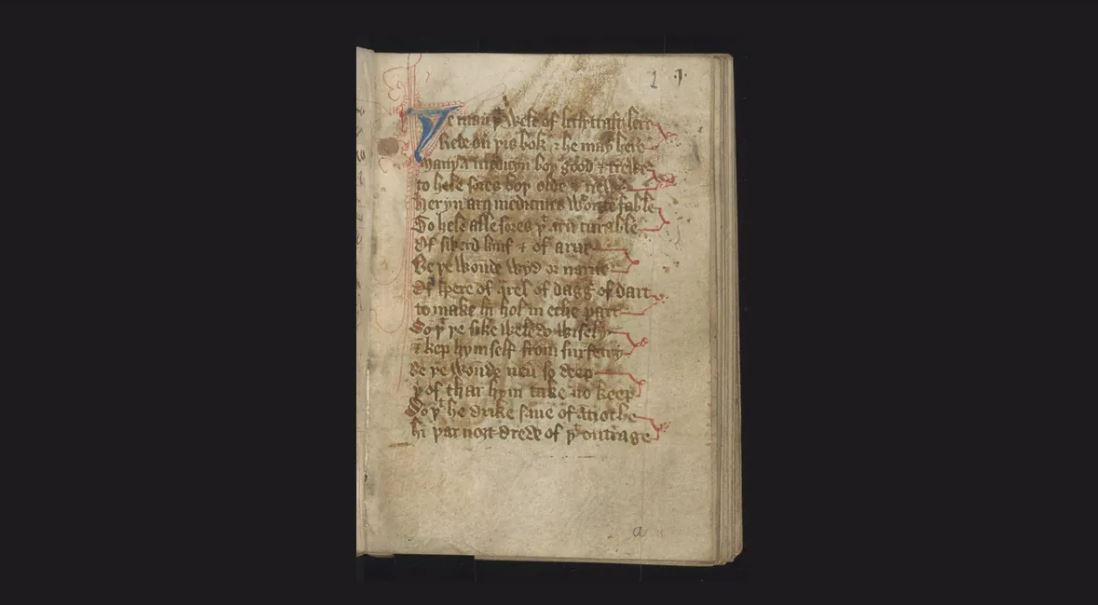 1 .j.
e man þt wele of lechecraft lere
Rede on þis bok & he may here
Many a medicyn boþ good & trewe
to hele sores boþ olde & newe
Heryn arn medicines
To hele alle sores þt arn curable
Of swerd knif & of arwe
Be ye wonde wyd or narwe
Of spere of qrel of dagg of dart
to make hi hol in eche part
So þt ye sike wele do wisely
& kep hymself from surfety
Be ye wonde neu so deep
þt of thar hym take no keep
So þt he drike saue or antioche
hi þar nozt drede of þt outrage
a